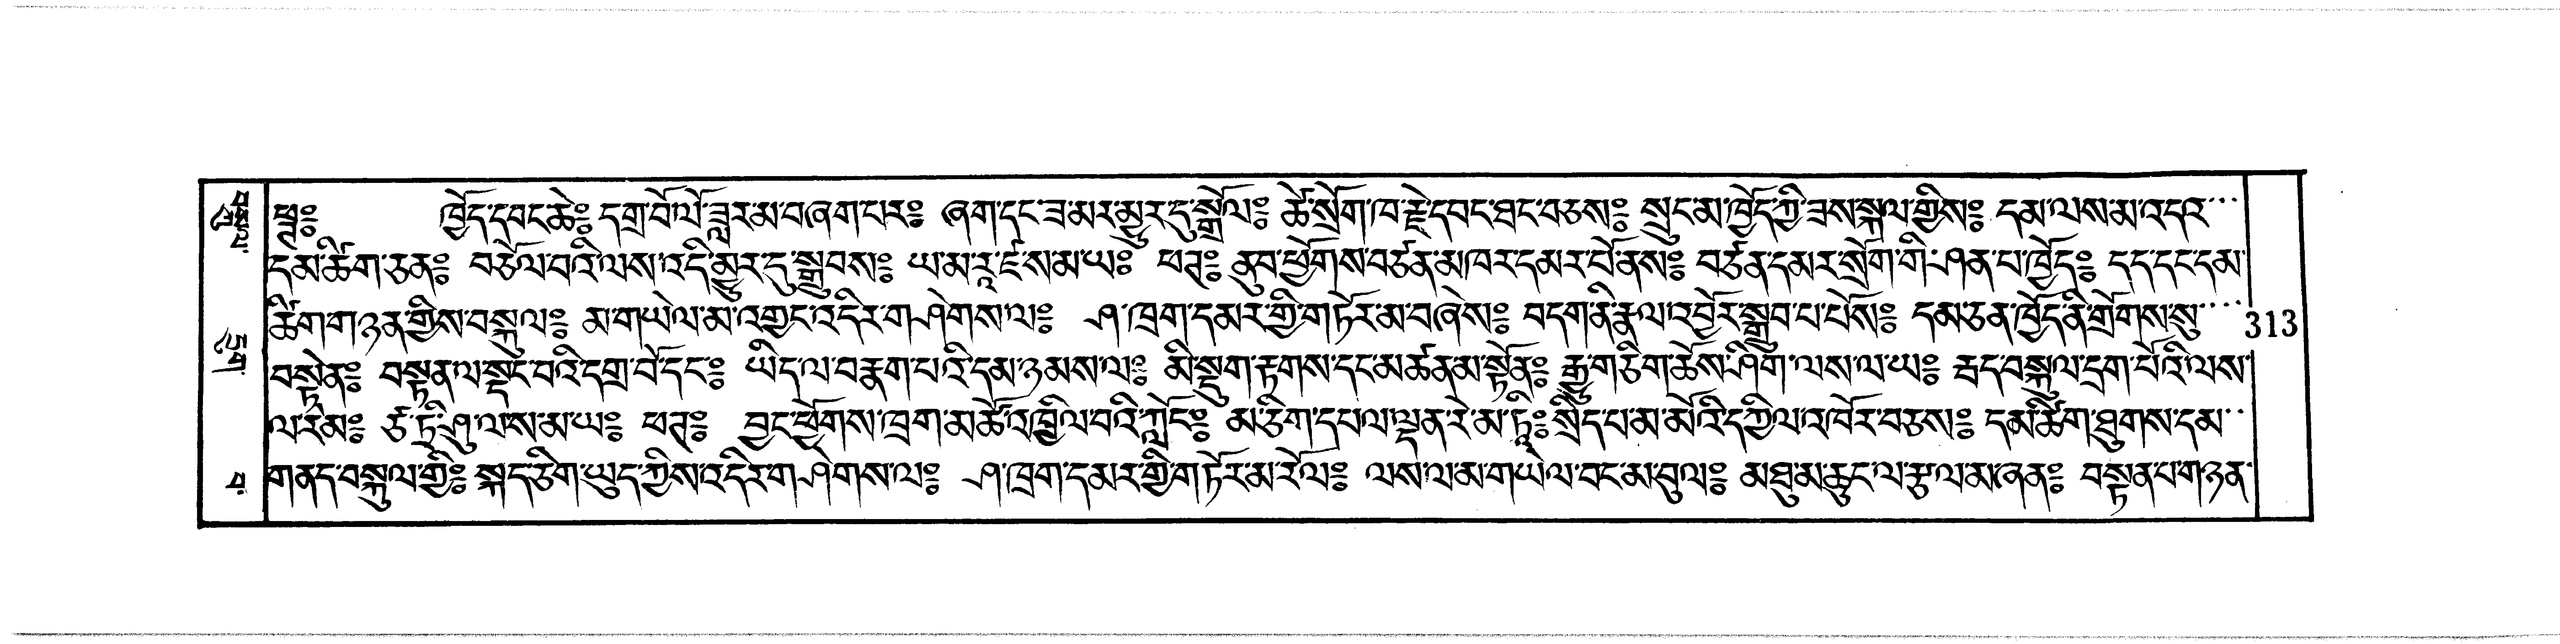 ཕཊ༔ ཁྱོད་དབང་ཆེ༔ དགྲ་བོ་ལོ་ཟླར་མ་བཞག་པར༔ ཞག་དང་ཟ་མར་མྱུར་དུ་སྒྲོལ༔ ཚེ་སྲོག་ཁ་རྗེ་དབང་ཐང་བཅས༔ སྲུང་མ་ཁྱོད་ཀྱི་ཟས་སྐལ་གྱིས༔ དམ་ལས་མ་འདའ་
དམ་ཚིག་ཅན༔ བཅོལ་བའི་ལས་འདི་མྱུར་དུ་སྒྲུབས༔ ཡ་མ་རཱ་ཛ་ས་མ་ཡ༔ ཕཊ༔ ནུབ་ཕྱོགས་བཙན་མཁར་དམར་པོ་ནས༔ བཙན་དམར་སྲོག་གི་ཤན་པ་ཁྱོད༔ དད་དང་དམ་
ཚིག་གཉན་གྱིས་བསྐུལ༔ མ་གཡེལ་མ་འགྱང་འདིར་གཤེགས་ལ༔ ཤ་ཁྲག་དམར་གྱི་གཏོར་མ་བཞེས༔ བདག་ནི་རྣལ་འབྱོར་སྒྲུབ་པ་པོས༔ དམ་ཅན་ཁྱོད་ནི་གྲོགས་སུ་
བསྟེན༔ བསྟན་ལ་སྡང་བའི་དགྲ་བོ་དང༔ ཡིད་ལ་བརྣག་པའི་དམ་ཉམས་ལ༔ མི་སྡུག་རྟགས་དང་མཚན་མ་སྟོན༔ རྒྱུ་གཅིག་ཆོས་ཤིག་ལས་ལ་ཡ༔ རྦད་བསྐུལ་དྲག་པོའི་ལས་
ལ་རམ༔ ཙ་ཏྲི་ཤུལ་ས་མ་ཡ༔ ཕཊ༔ བྱང་ཕྱོགས་ཁྲག་མཚོ་འཁྱིལ་བའི་ཀློང༔ མ་ཅིག་དཔལ་ལྡན་རེ་མ་ཏཱི༔ སྲིད་པ་མ་མོའི་དཀྱིལ་འཁོར་བཅས༔ དམ་ཚིག་ཐུགས་དམ་
གནད་བསྐུལ་གྱི༔ སྐད་ཅིག་ཡུད་ཀྱིས་འདིར་གཤེགས་ལ༔ ཤ་ཁྲག་དམར་གྱི་གཏོར་མ་རོལ༔ ལས་ལ་མ་གཡེལ་བང་མ་བུལ༔ མཐུ་མ་ཆུང་ལ་རྩལ་མ་ཞན༔ བསྟན་པ་གཉན་
313